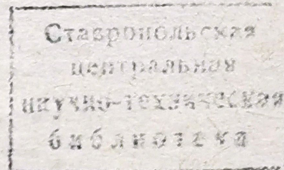 Ставропольская
центральная
научно-техническая
библиотека